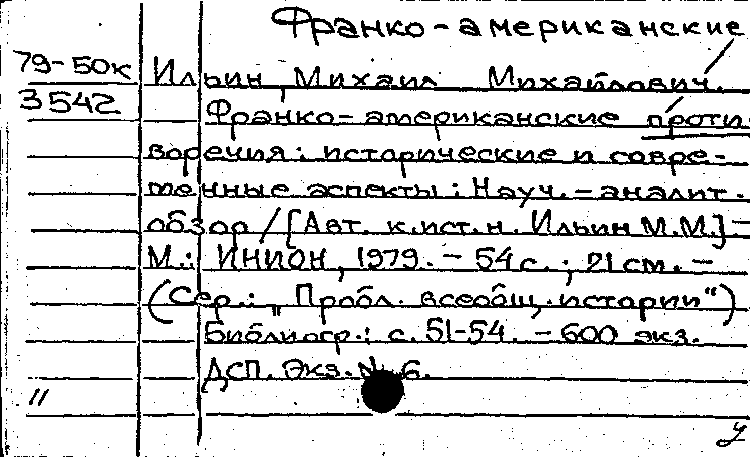 Франко-американские
79-50к Ильин, Михаил Михайлович.
3542 Франко-американские проти-
воречия: исторические и совре-
менные аспекты: Науч.-аналит.
обзор / [Авт. к.ист.н. Ильин М.М.] -
М.: ИНИОН, 1979. - 54 с.; 21 см. -
(Сер.: „Пробл. всеобщ. истории")
Библиогр.: с. 51-54. - 600 экз.
ДСП. Экз. № 6.